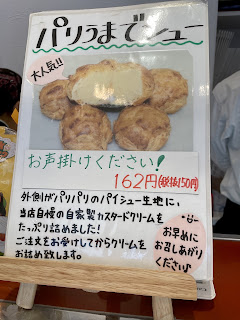 パリうまでシュー
大人気!!
お声掛けください!
162円(税抜150円)
外側がパリパリのパイシュー生地に、
当店自慢の自家製カスタードクリームを
たっぷり詰めました!
ご注文をお受けしてからクリームを
お詰め致します。
お早めに
お召しあがり
ください♪